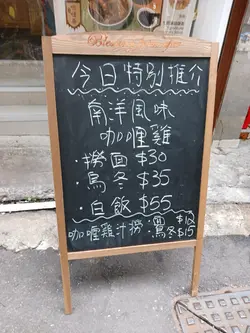 今日特別推介
南洋風味
咖喱雞
·撈面$30
·烏冬$35
·白飯$55
咖喱雞汁撈:面$12
烏冬$15